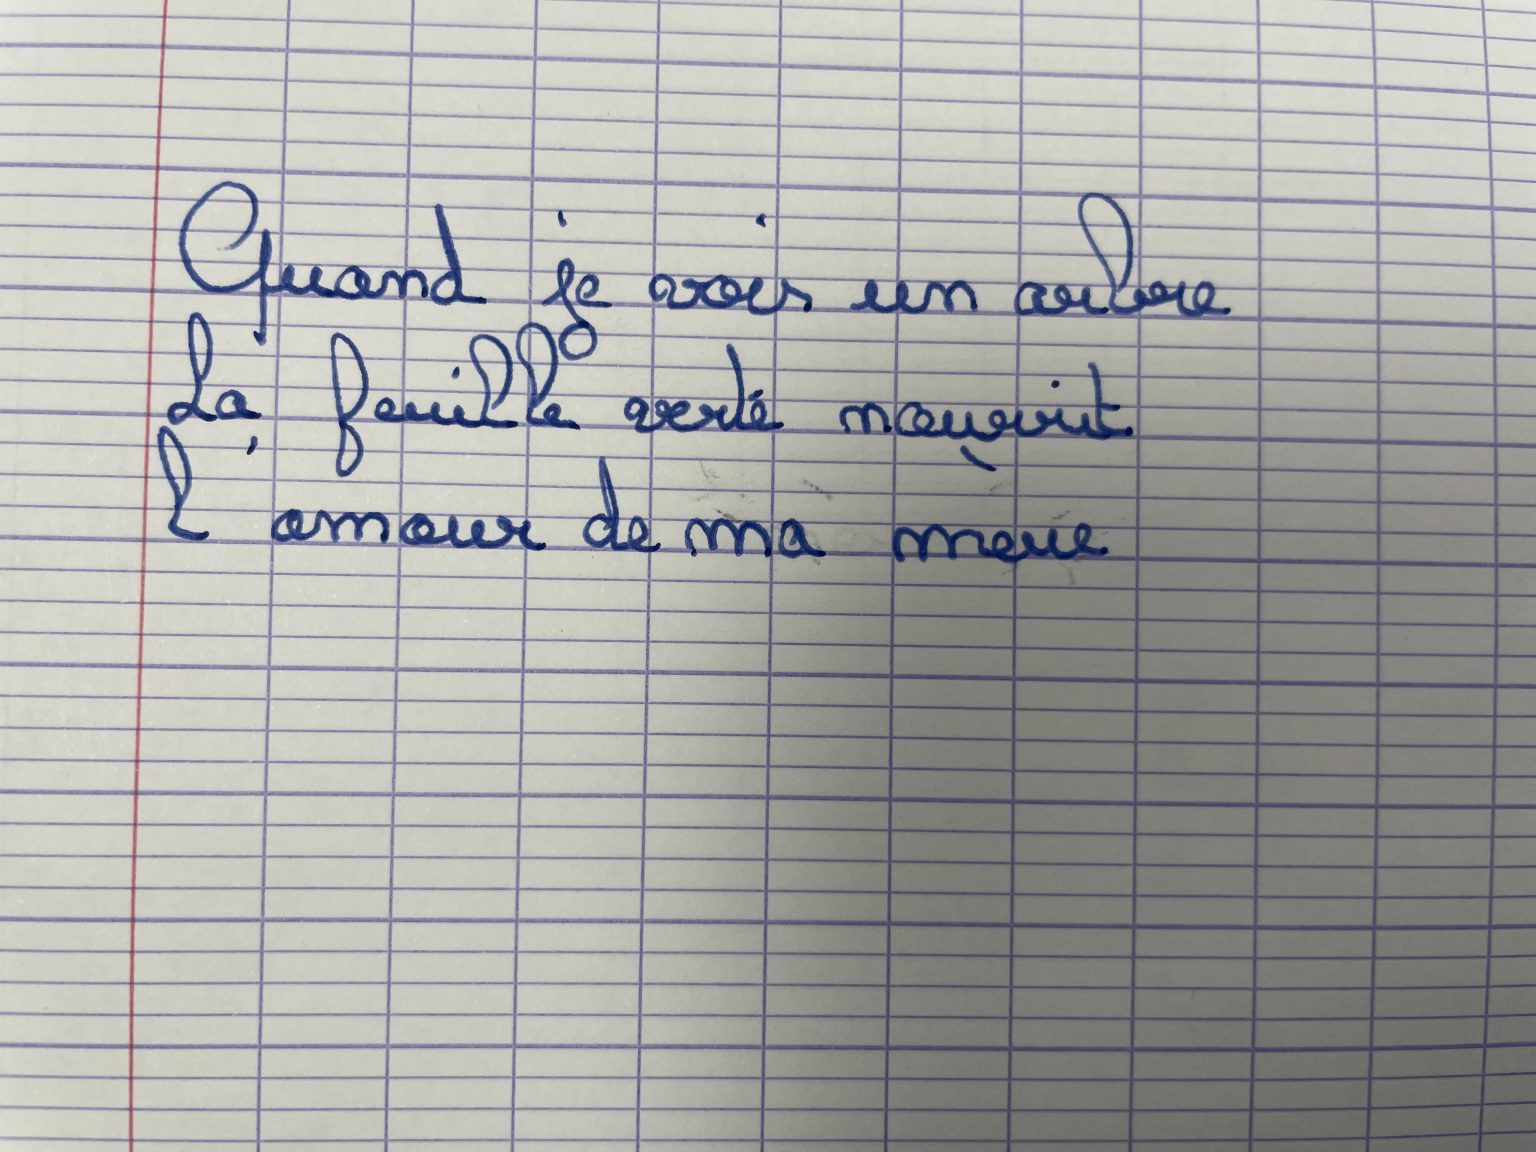 Quand je vois un arbre
La feuille verte nourrit
l'amour de ma mère